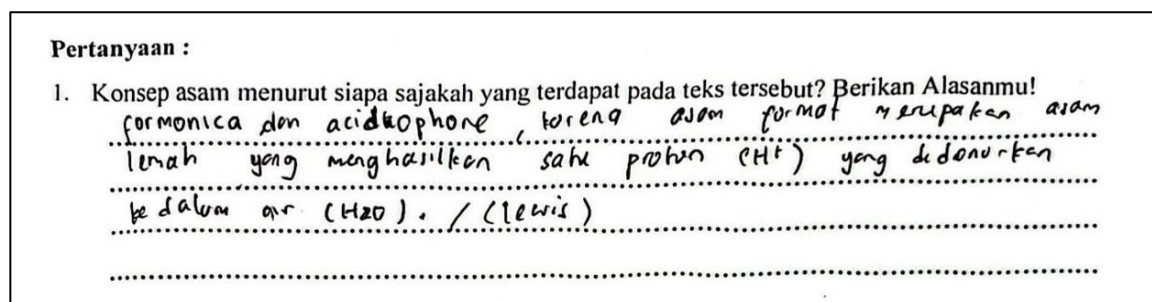 Pertanyaan :
1. Konsep asam menurut siapa sajakah yang terdapat pada teks tersebut? Berikan Alasanmu!
formonica dan acidhophone, karena asam format merupakan asam
lemah yang menghasilkan satu proton (H+) yang didonorkan
ke dalam air (H2O). / (lewis)